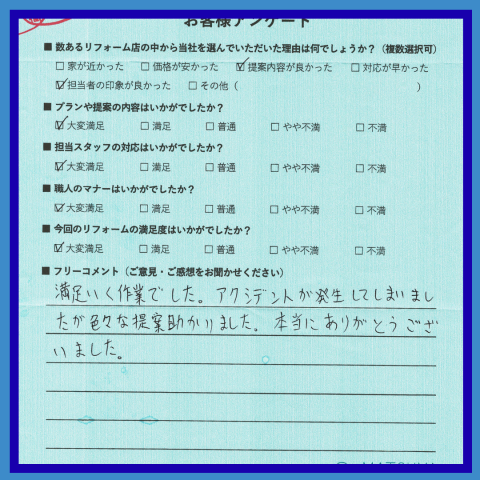 お客様アンケート
■ 数あるリフォーム店の中から当社を選んでいただいた理由は何でしょうか？（複数選択可）
□ 家が近かった □ 価格が安かった ☑ 提案内容が良かった □ 対応が早かった
☑ 担当者の印象が良かった □ その他（ ）
■ プランや提案の内容はいかがでしたか？
☑ 大変満足 □ 満足 □ 普通 □ やや不満 □ 不満
■ 担当スタッフの対応はいかがでしたか？
☑ 大変満足 □ 満足 □ 普通 □ やや不満 □ 不満
■ 職人のマナーはいかがでしたか？
☑ 大変満足 □ 満足 □ 普通 □ やや不満 □ 不満
■ 今回のリフォームの満足度はいかがでしたか？
☑ 大変満足 □ 満足 □ 普通 □ やや不満 □ 不満
■ フリーコメント（ご意見・ご感想をお聞かせください）
満足いく作業でした。アクシデントが発生してしまいまし
たが色々な提案助かりました。本当にありがとうござ
いました。